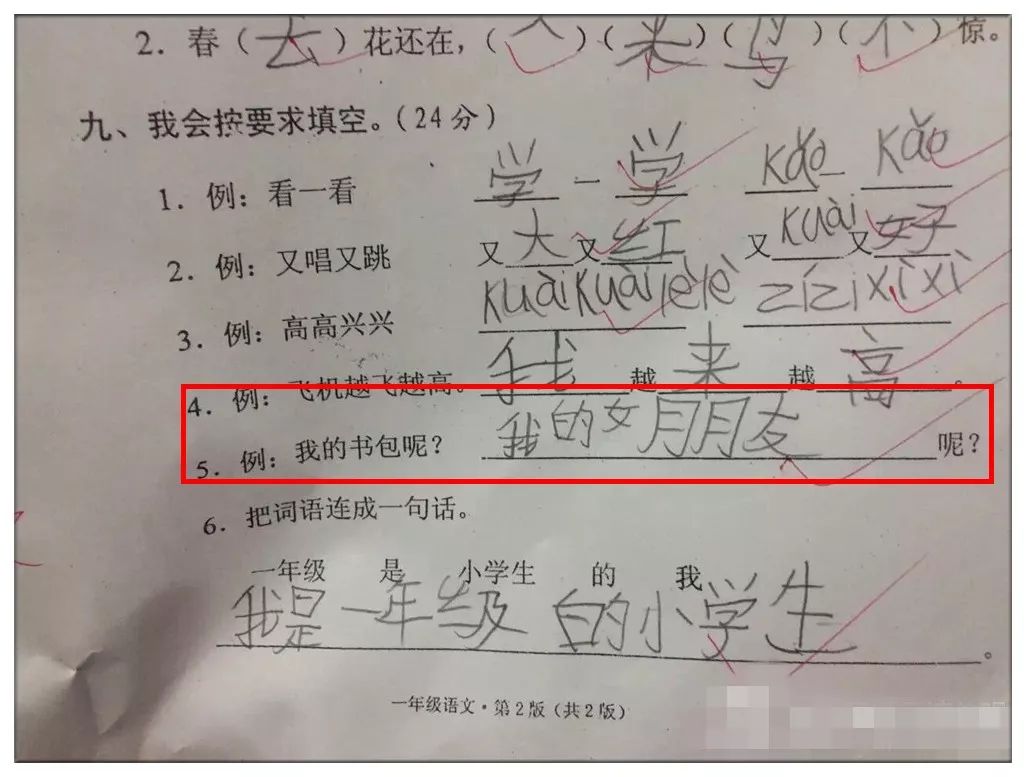 2. 春（去）花还在，（人）（来）（鸟）（不）惊。
九、我会按要求填空。（24分）
1. 例：看一看 学－学 kǎo－kǎo
2. 例：又唱又跳 又大又红 又kuài又好
3. 例：高高兴兴 kuàikuàilèlè zǐzǐxìxì
4. 例：飞机越飞越高。 我越来越高。
5. 例：我的书包呢？ 我的女朋友呢？
6. 把词语连成一句话。
一年级 是 小学生 的 我
我是一年级的小学生。
一年级语文·第2版（共2版）